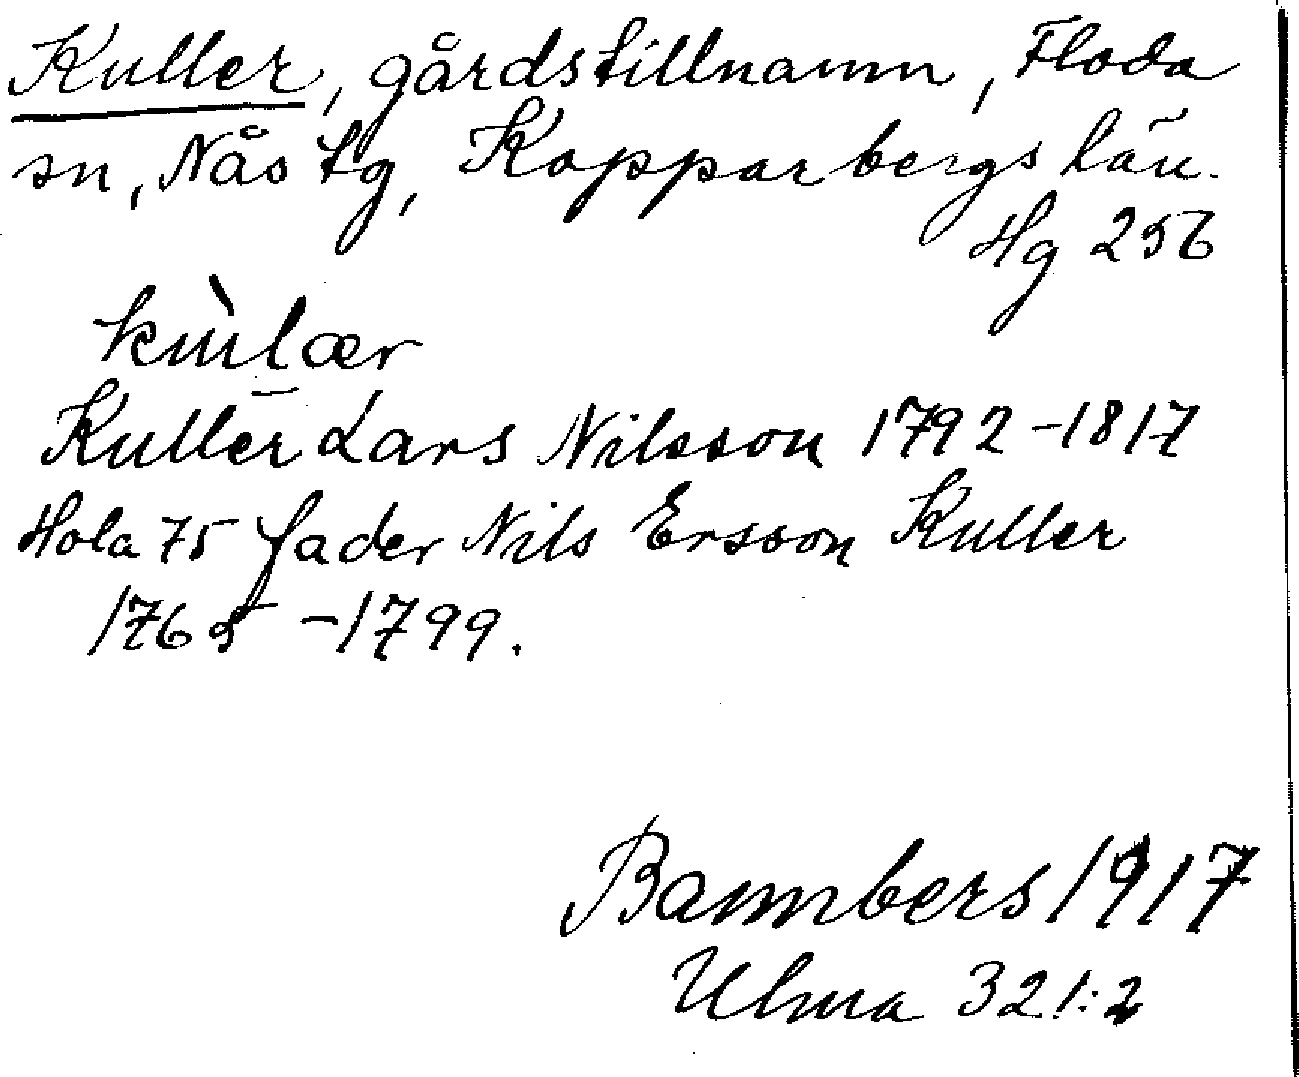 Kuller, gårdstillnamn, Floda
sn, Nås tg, Kopparbergs län.
Hg 256
kùlær
Kuller Lars Nilsson 1792-1817
Hola 75 fader Nils Ersson Kuller
1765-1799.
Bannbers 1917
Ulma 321:2